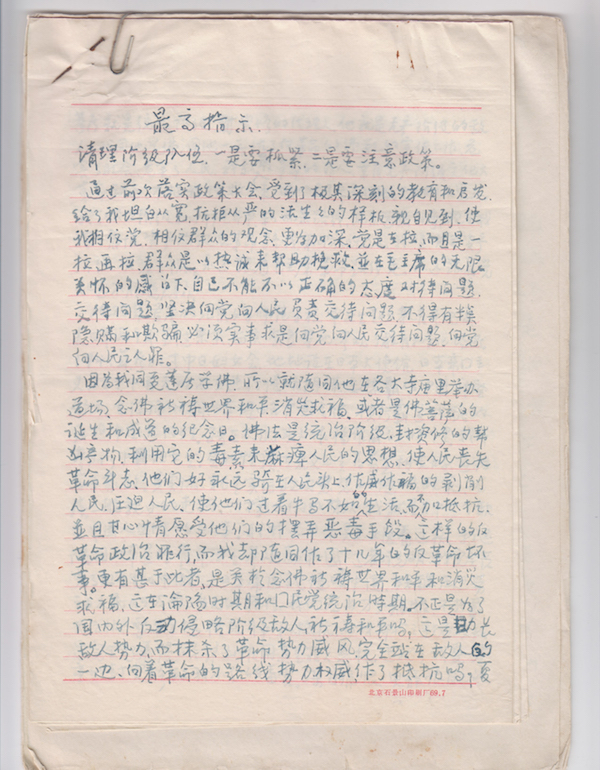 最高指示.
清理阶级队伍,一是要抓紧,二是要注意政策。
通过前次落实政策大会,受到了极其深刻的教育和启发,
给了我坦白从宽,抗拒从严的活生生的样板,亲自见到,使
我相信党,相信群众的观念,更为加深,党是在拉,而且是一
拉,再拉,群众是以热诚来帮助挽救,並在毛主席的无限
关怀的感召下,自己不能不以正确的态度对待问题,
交待问题,坚决向党向人民负责交待问题,不得有半点
隐瞒和欺骗,必须实事求是向党向人民交待问题,向党
向人民认罪。
因为我同夏莲居学佛,所以就随同他在各大寺庙里举办
道场,念佛祈祷世界和平消灾求福,或者是佛菩萨的
诞生和成道的纪念日。佛法是统治阶级,封资修的帮
凶产物,利用它的毒素来麻痺人民的思想,使人民丧失
革命斗志,他们好永远骑在人民头上,作威作福的剥削
人民,压迫人民,使他们过着牛马不如的生活,而不加抵抗,
並且甘心情愿受他们的摆弄恶毒手段。这样的反
革命政治罪行,而我却随同作了十几年的反革命坏
事。更有甚于此者,是关於念佛祈祷世界和平和消灾
求福,这在淪陷时期和国民党统治時期,不正是为了
国内外反动侵略阶级敌人祈祷和平吗,这是助长
敌人势力,而抹杀了革命势力威风,完全站在敌人的
一边,向着革命的路线势力权威,作了抵抗吗,夏
北京石景山印刷厂69.7